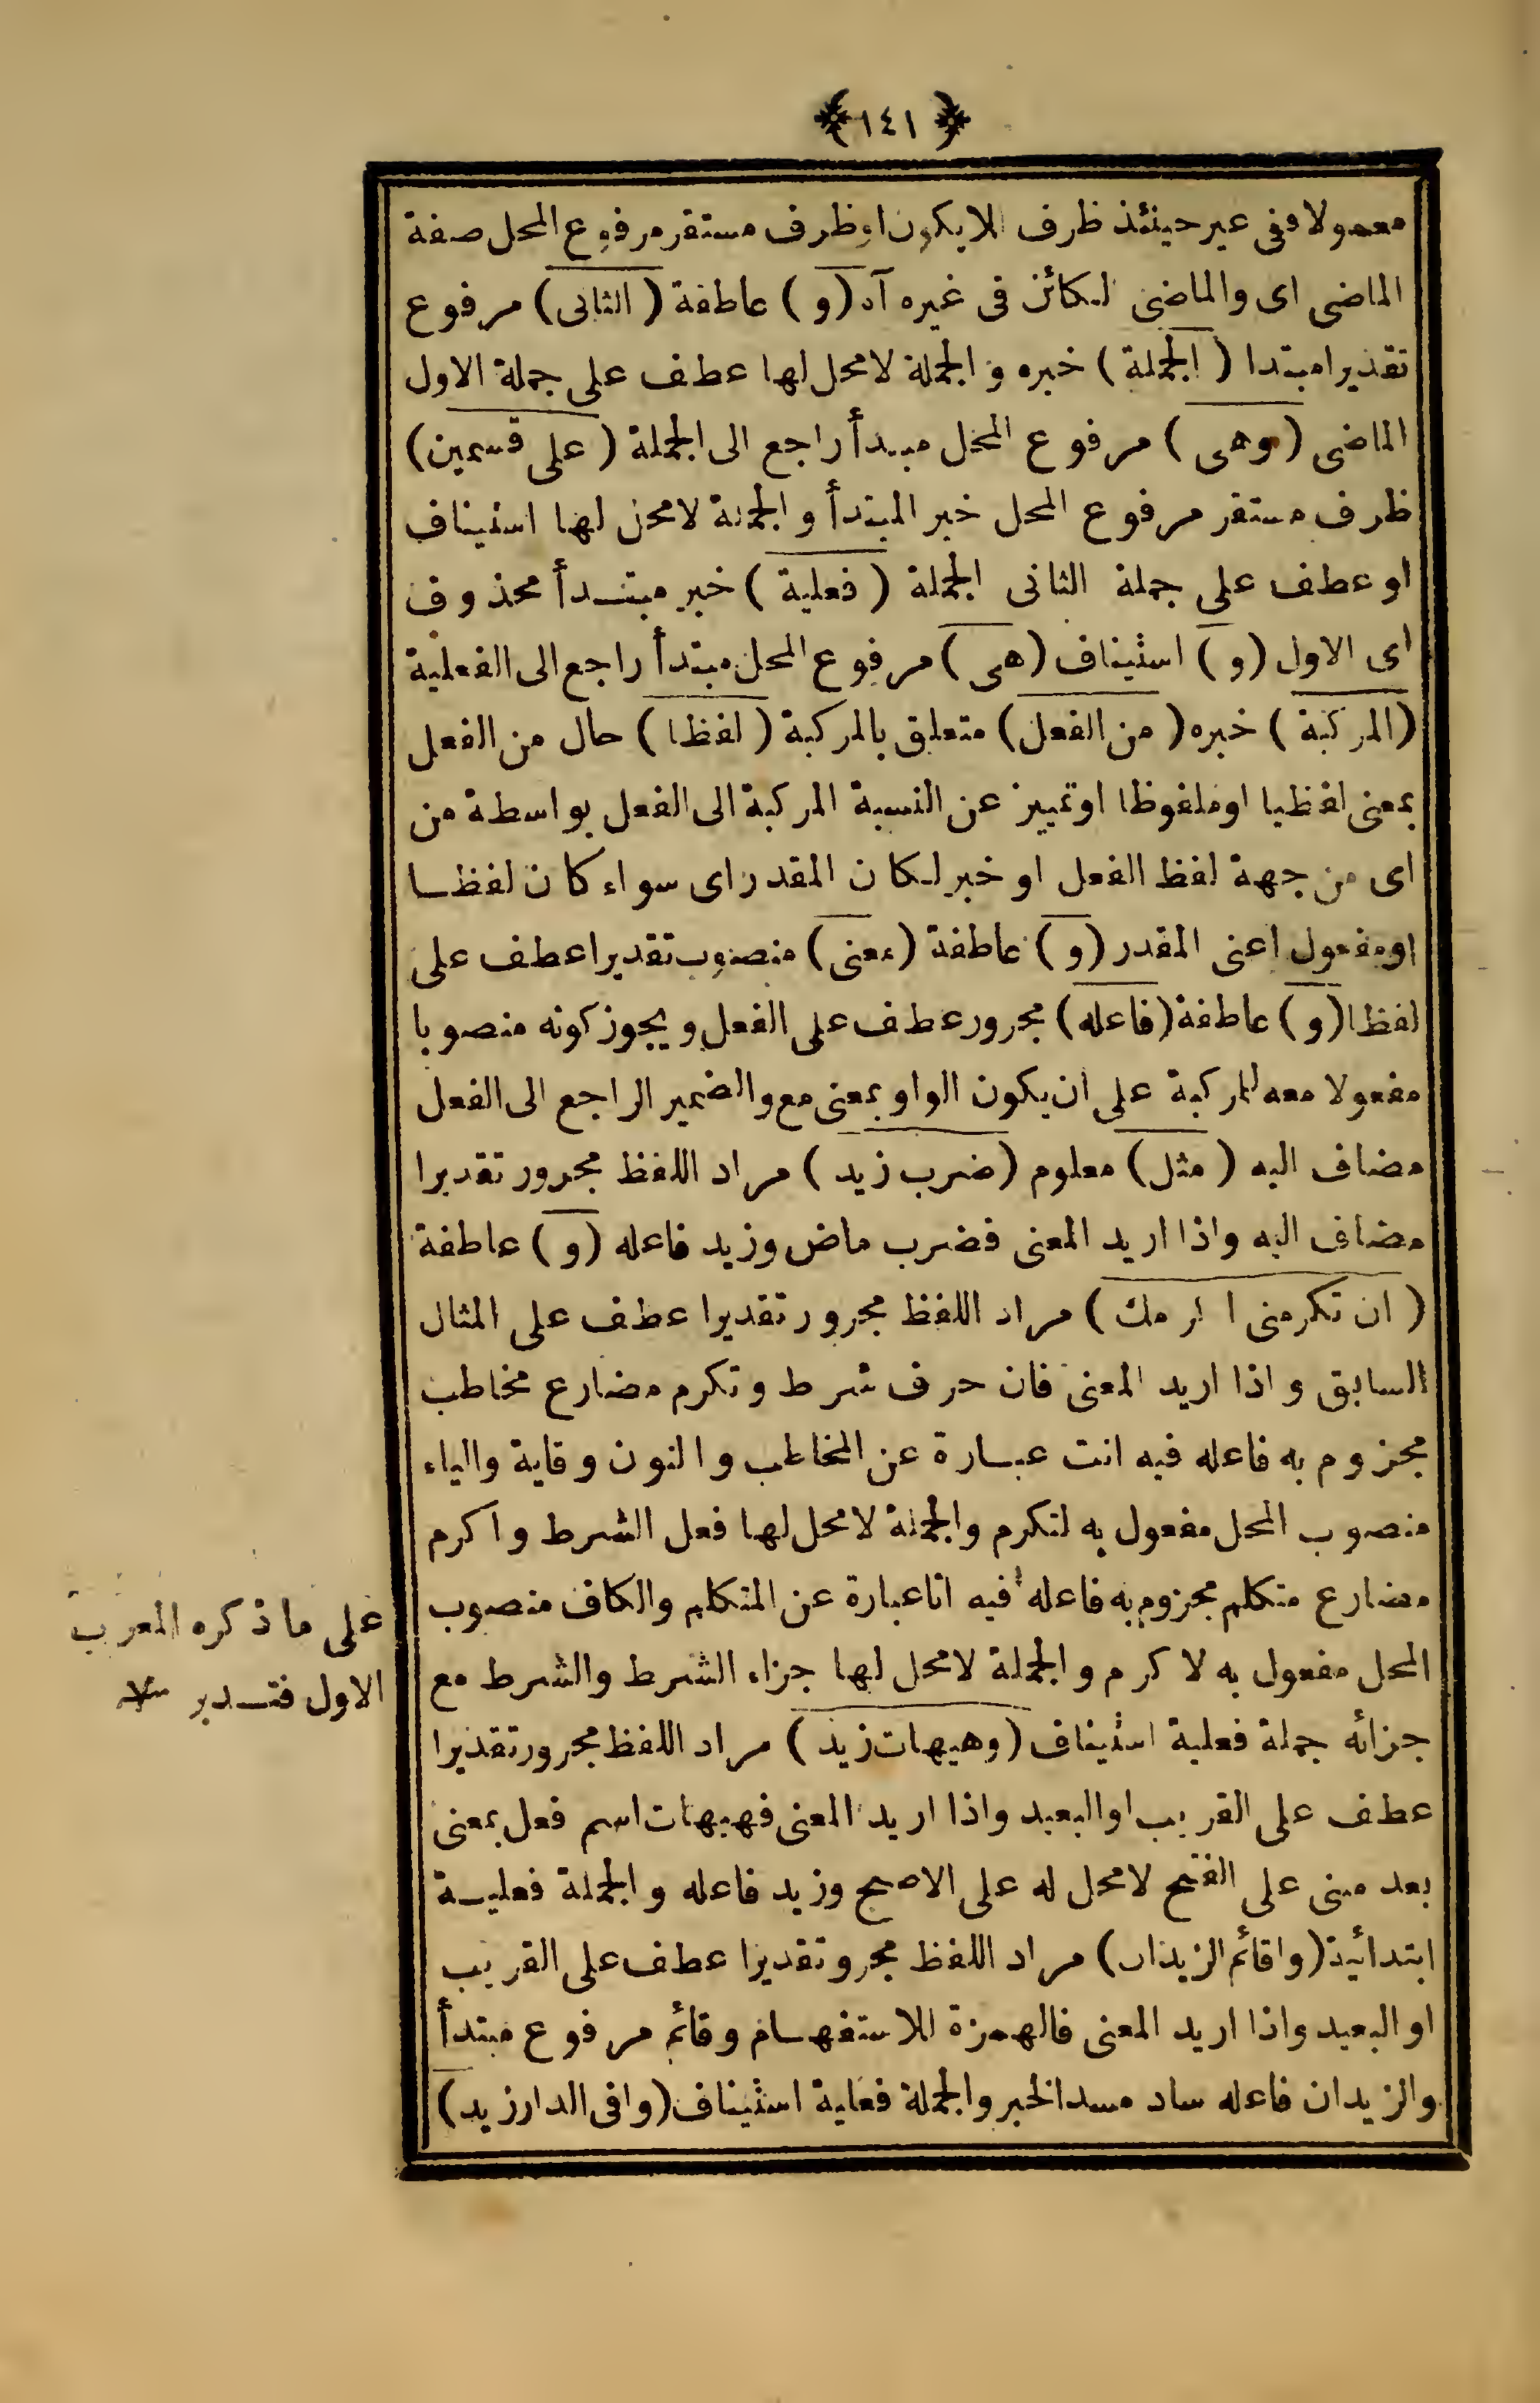 ﴿١٤١﴾
معمولا ففى غير حينئذ ظرف للايكون او ظرف مستقر مرفوع المحل صفة
الماضى اى والماضى الكائن فى غيره آه (و) عاطفة (الثانى) مرفوع
تقديرا مبتدا (الجملة) خبره و الجملة لامحل لها عطف على جملة الاول
الماضى (وهى) مرفوع المحل مبتدأ راجع الى الجملة (على قسمين)
ظرف مستقر مرفوع المحل خبر المبتدأ والجملة لامحل لها استيناف
او عطف على جملة الثانى الجملة (فعلية) خبر مبتدأ محذوف
اى الاول (و) استيناف (هى) مرفوع المحل مبتدأ راجع الى الفعلية
(المركبة) خبره (من الفعل) متعلق بالمركبة (لفظا) حال من الفعل
بمعنى لفظيا او ملفوظا او تمييز عن النسبة المركبة الى الفعل بواسطة من
اى من جهة لفظ الفعل او خبر لكان المقدر اى سواء كان لفظا
او مفعول اعنى المقدر (و) عاطفة (معنى) منصوب تقديرا عطف على
لفظا (و) عاطفة (فاعله) مجرور عطف على الفعل و يجوز كونه منصوبا
مفعولا معه للمركبة على ان يكون الواو بمعنى مع والضمير الراجع الى الفعل
مضاف اليه (مثل) معلوم (ضرب زيد) مراد اللفظ مجرور تقديرا
مضاف اليه واذا اريد المعنى فضرب ماض وزيد فاعله (و) عاطفة
(ان تكرمنى اكرمك) مراد اللفظ مجرور تقديرا عطف على المثال
السابق واذا اريد المعنى فان حرف شرط وتكرم مضارع مخاطب
مجزوم به فاعله فيه انت عبارة عن المخاطب والنون وقاية والياء
منصوب المحل مفعول به لتكرم والجملة لامحل لها فعل الشرط واكرم
مضارع متكلم مجزوم به فاعله فيه انا عبارة عن المتكلم والكاف منصوب
المحل مفعول به لاكرم والجملة لامحل لها جزاء الشرط والشرط مع
جزائه جملة فعلية استيناف (وهيهات زيد) مراد اللفظ مجرور تقديرا
عطف على القريب او البعيد واذا اريد المعنى فهيهات اسم فعل بمعنى
بعد مبنى على الفتح لامحل له على الاصح وزيد فاعله والجملة فعلية
ابتدائية (واقائم الزيدان) مراد اللفظ مجرو تقديرا عطف على القريب
او البعيد واذا اريد المعنى فالهمزة للاستفهام وقائم مرفوع مبتدأ
والزيدان فاعله ساد مسد الخبر والجملة فعلية استيناف (وافى الدار زيد)
على ما ذكره المعرب
الاول فتدبر